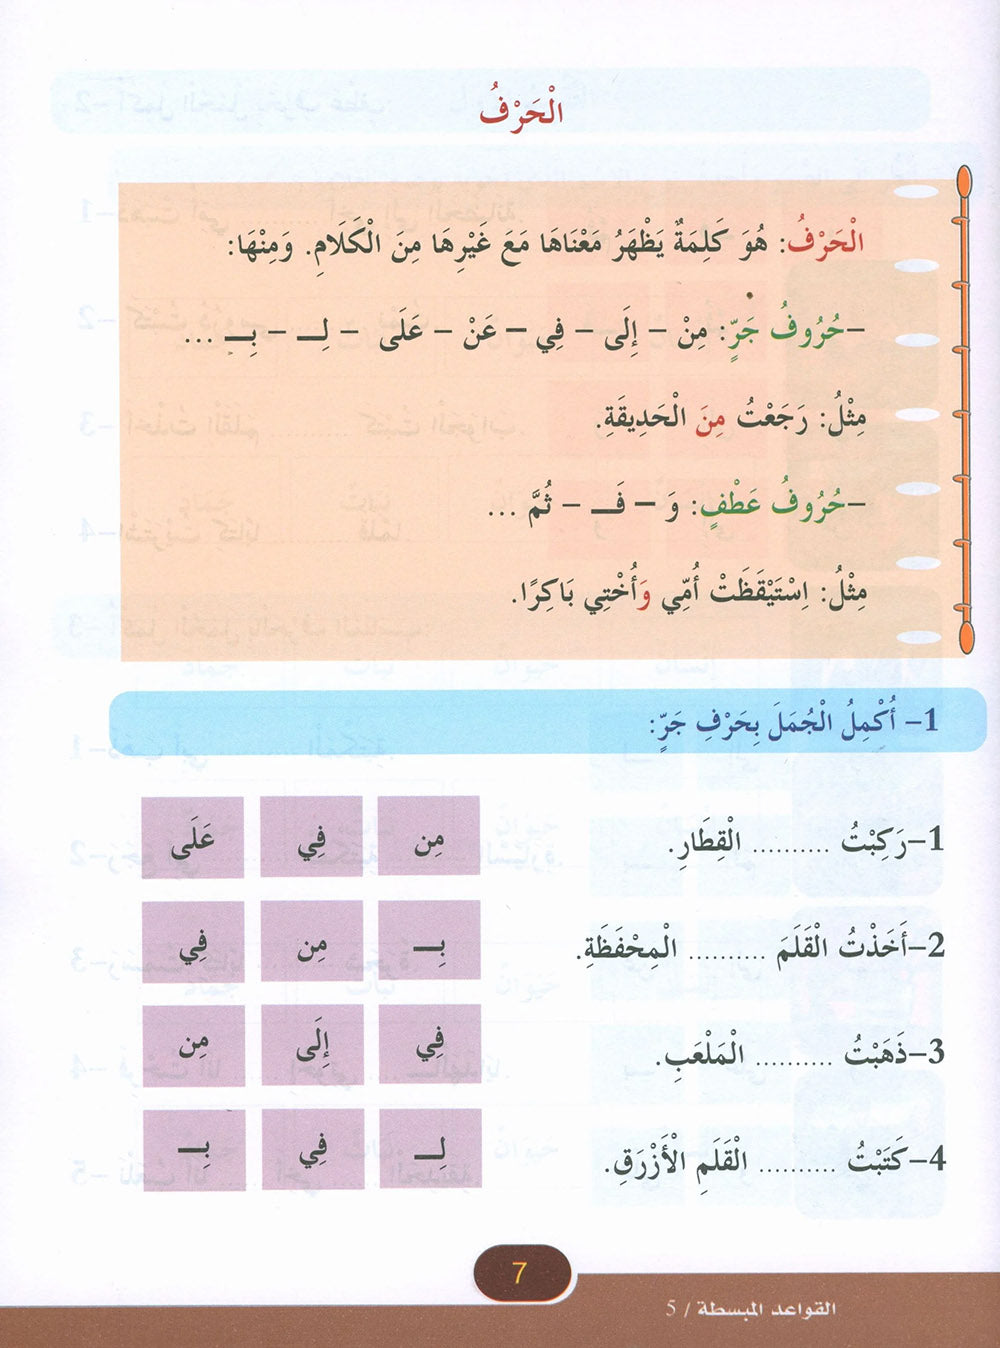 الْحَرْفُ
الْحَرْفُ: هُوَ كَلِمَةٌ يَظْهَرُ مَعْنَاهَا مَعَ غَيْرِهَا مِنَ الْكَلَامِ. وَمِنْهَا:
-حُرُوفُ جَرٍّ: مِنْ - إِلَى - فِي - عَنْ - عَلَى - لِـ - بِـ ...
مِثْلُ: رَجَعْتُ مِنَ الْحَدِيقَةِ.
-حُرُوفُ عَطْفٍ: وَ - فَـ - ثُمَّ ...
مِثْلُ: اِسْتَيْقَظَتْ أُمِّي وَأُخْتِي بَاكِرًا.
1- أُكْمِلُ الْجُمَلَ بِحَرْفِ جَرٍّ:
1-رَكِبْتُ .......... الْقِطَارِ. مِن فِي عَلَى
2-أَخَذْتُ الْقَلَمَ .......... الْمِحْفَظَةِ. بِـ مِن فِي
3-ذَهَبْتُ .......... الْمَلْعَبِ. فِي إِلَى مِن
4-كَتَبْتُ .......... الْقَلَمِ الْأَزْرَقِ. لِـ فِي بِـ
7
القواعد المبسطة / 5